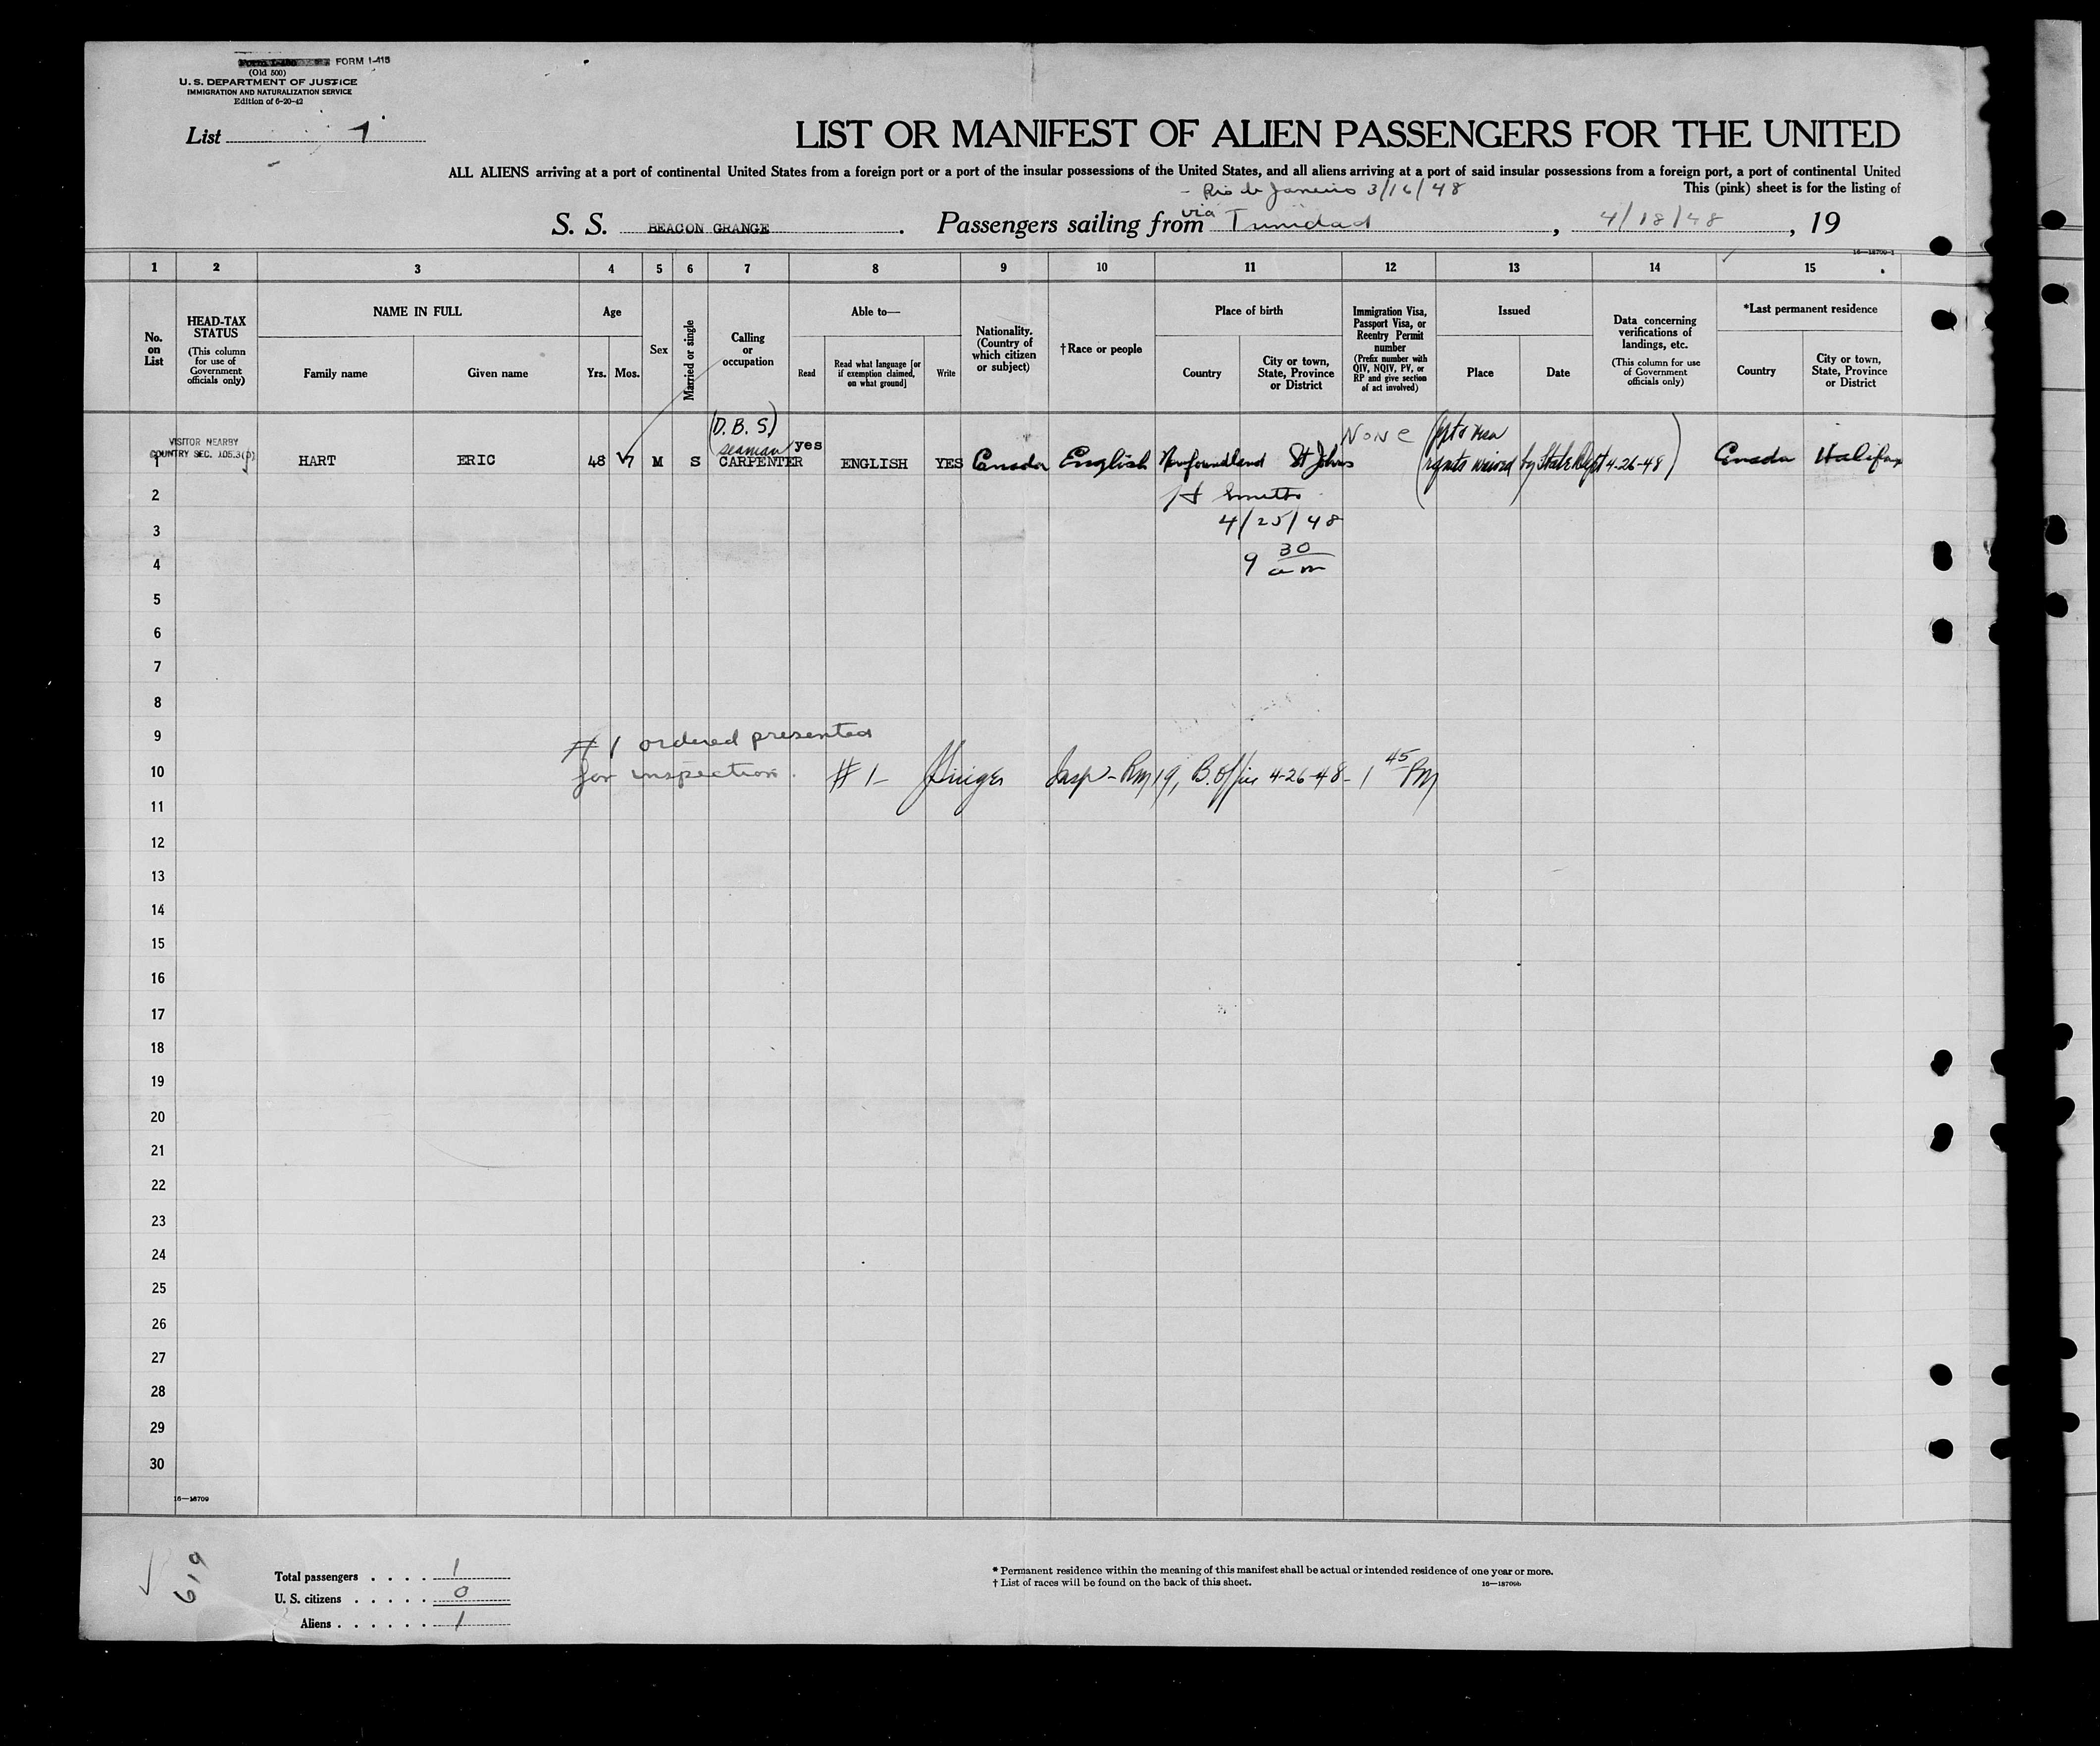 FORM I-415
(Old 500)
U. S. DEPARTMENT OF JUSTICE
IMMIGRATION AND NATURALIZATION SERVICE
Edition of 6-20-42
List 1
LIST OR MANIFEST OF ALIEN PASSENGERS FOR THE UNITED
ALL ALIENS arriving at a port of continental United States from a foreign port or a port of the insular possessions of the United States, and all aliens arriving at a port of said insular possessions from a foreign port, a port of continental United
This (pink) sheet is for the listing of
- Rio de Janeiro 3/16/48
S. S. BEACON GRANGE. Passengers sailing from via Trinidad, 4/18/48, 19
16—18709-1
1 2 3 4 5 6 7 8 9 10 11 12 13 14 15
No. on List
HEAD-TAX STATUS
(This column for use of Government officials only)
NAME IN FULL
Family name
Given name
Age
Yrs.
Mos.
Sex
Married or single
Calling or occupation
Able to—
Read
Read what language [or if exemption claimed, on what ground]
Write
Nationality. (Country of which citizen or subject)
†Race or people
Place of birth
Country
City or town, State, Province or District
Immigration Visa, Passport Visa, or Reentry Permit number
(Prefix number with QIV, NQIV, PV, or RP and give section of act involved)
Issued
Place
Date
Data concerning verifications of landings, etc.
(This column for use of Government officials only)
*Last permanent residence
Country
City or town, State, Province or District
VISITOR NEARBY
COUNTRY SEC. 105.3(b)
(D. B. S.)
seaman
1 HART ERIC 48 7 M S CARPENTER yes ENGLISH YES Canada English Newfoundland St Johns None Canada Halifax
(ppt & visa
rqmts waived by State Dept 4-26-48)
2
4/25/48
3
9 30 am
4
5
6
7
8
9
# 1 ordered presented
for inspection.
10
# 1- Insp - Rm 19, B. Office 4-26-48 - 1 45 PM
11
12
13
14
15
16
17
18
19
20
21
22
23
24
25
26
27
28
29
30
16—18709
619
Total passengers . . . . 1
U. S. citizens . . . . . 0
Aliens . . . . . . 1
* Permanent residence within the meaning of this manifest shall be actual or intended residence of one year or more.
† List of races will be found on the back of this sheet.
16—18709b